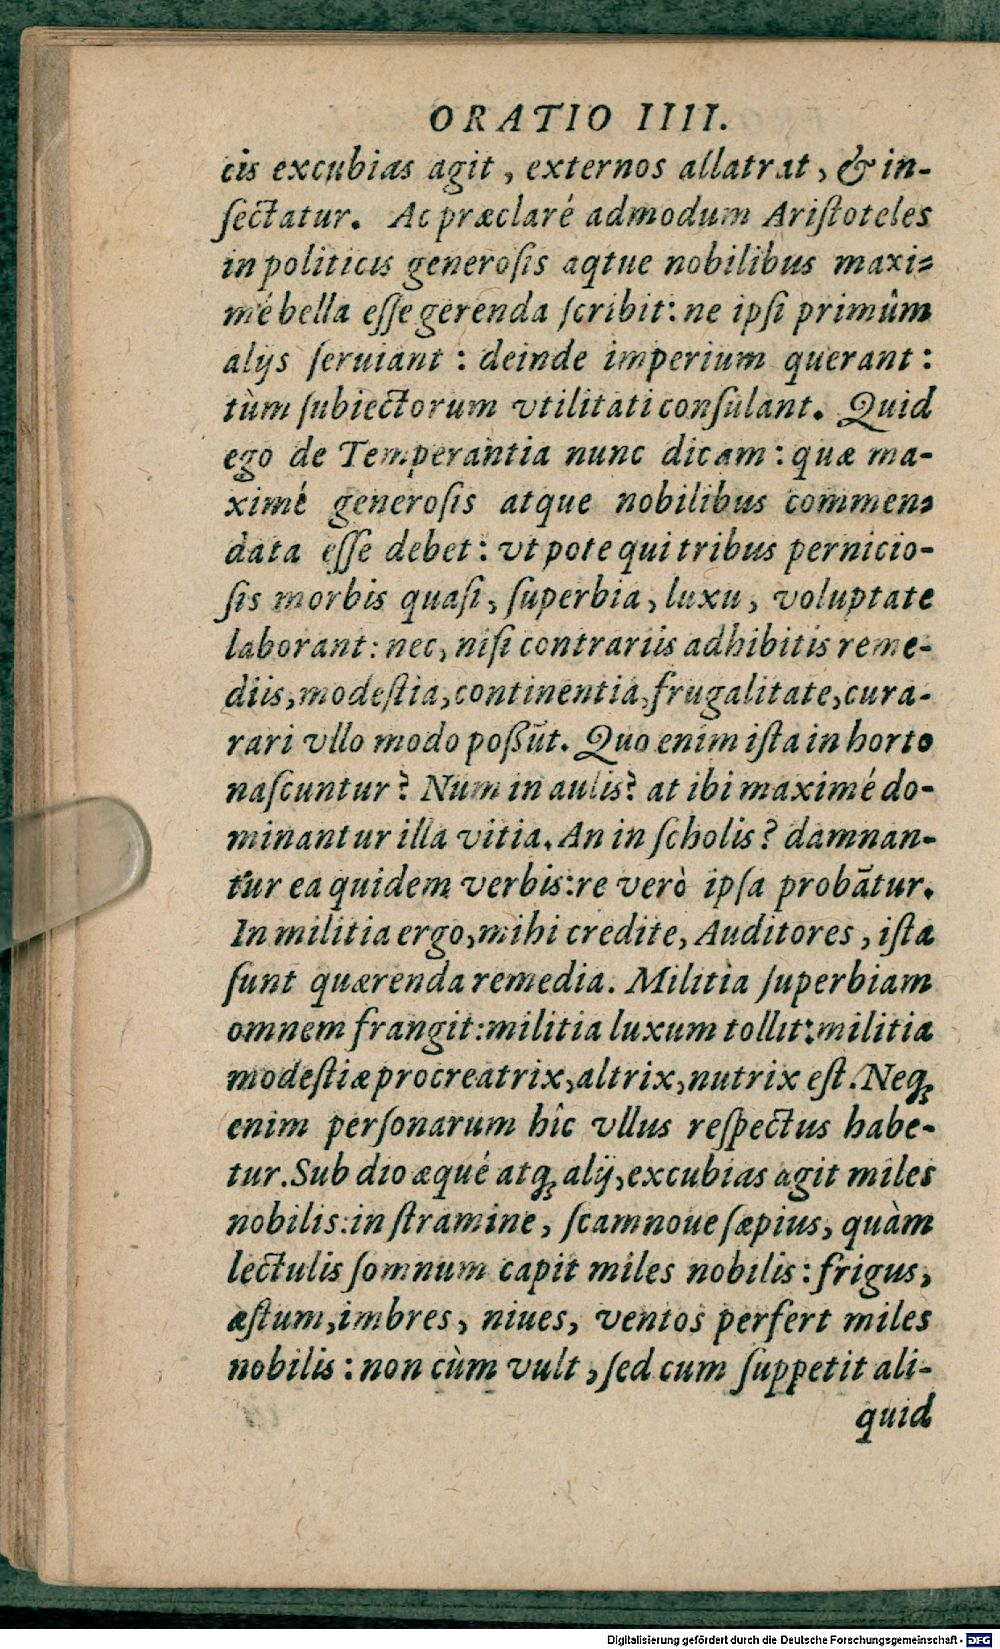 ORATIO IIII.
cis excubias agit, externos allatrat, & in-
ſectatur. Ac præclaré admodum Ariſtoteles
in politicis generoſis aqtue nobilibus maxi-
mé bella eſſe gerenda ſcribit: ne ipſi primûm
alijs ſeruiant: deinde imperium querant:
tùm ſubiectorum vtilitati conſulant. Quid
ego de Temperantia nunc dicam: quæ ma-
ximé generoſis atque nobilibus commen-
data eſſe debet: vt pote qui tribus pernicio-
ſis morbis quaſi, ſuperbia, luxu, voluptate
laborant: nec, niſi contrariis adhibitis reme-
diis, modeſtia, continentia, frugalitate, cura-
rari vllo modo poßũt. Quo enim iſta in horto
naſcuntur? Num in aulis? at ibi maximé do-
minantur illa vitia. An in ſcholis? damnan-
tur ea quidem verbis: re verò ipſa probãtur.
In militia ergo, mihi credite, Auditores, iſta
ſunt quærenda remedia. Militia ſuperbiam
omnem frangit: militia luxum tollit: militia
modeſtiæ procreatrix, altrix, nutrix eſt. Neqꝫ
enim perſonarum hîc vllus reſpectus habe-
tur. Sub dio æqué atqꝫ alij, excubias agit miles
nobilis: in ſtramine, ſcamnoue ſæpius, quàm
lectulis ſomnum capit miles nobilis: frigus,
æſtum, imbres, niues, ventos perfert miles
nobilis: non cùm vult, ſed cum ſuppetit ali-
quid
Digitalisierung gefördert durch die Deutsche Forschungsgemeinschaft - DFG